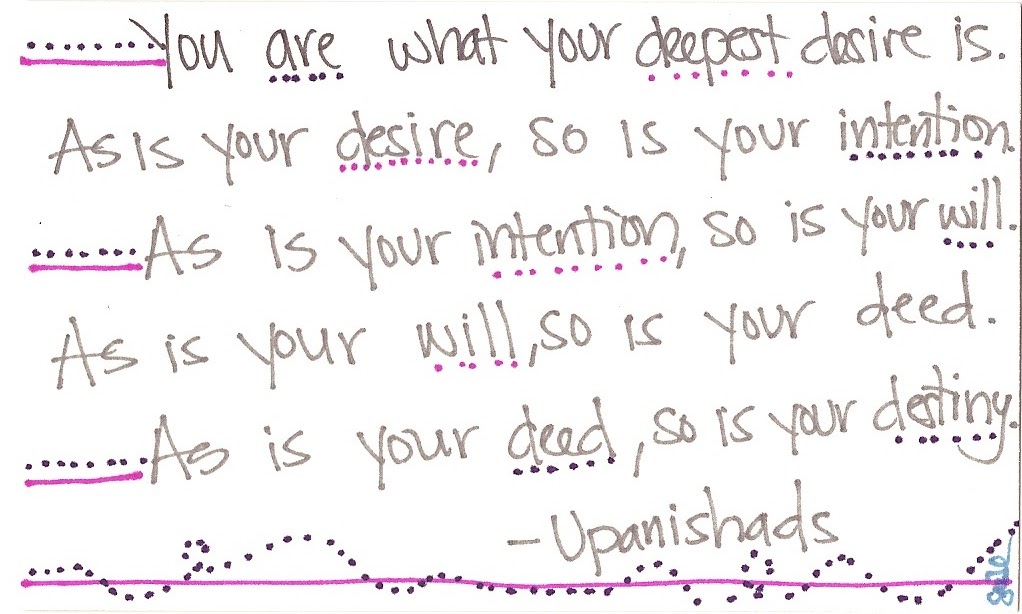 You are what your deepest desire is.
As is your desire, so is your intention.
As is your intention, so is your will.
As is your will, so is your deed.
As is your deed, so is your destiny.
- Upanishads